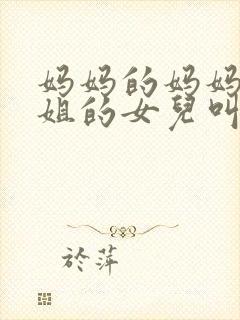 妈妈的妈妈
姐的女兒叫
於萍